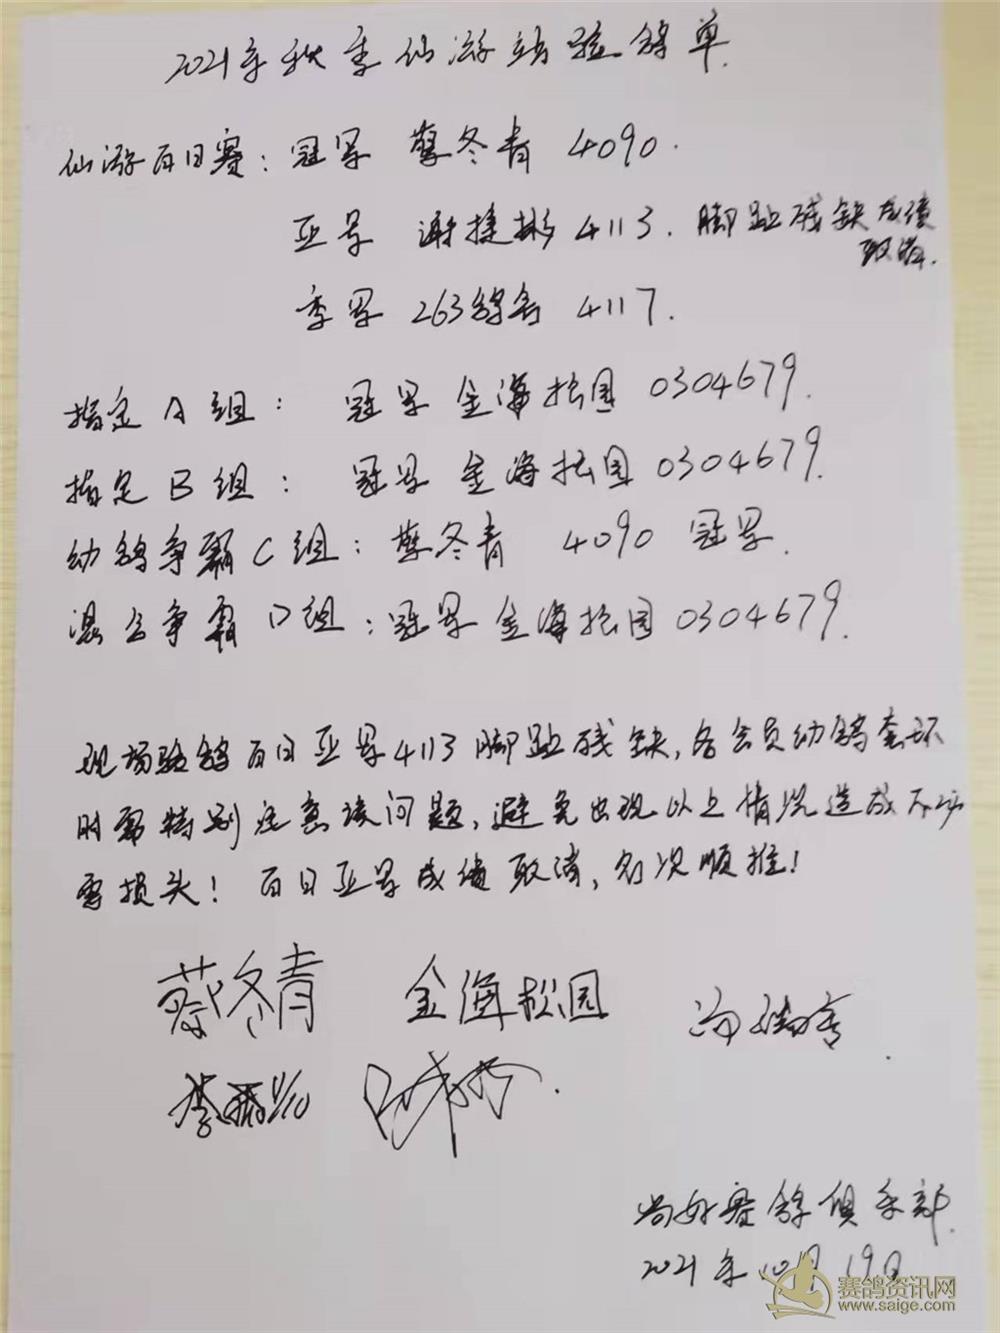 2021年秋季仙游站验鸽单
仙游百日赛：冠军 蔡冬青 4090.
亚军 谢捷彬 4113. 脚趾残缺成绩
取消.
季军 263鸽舍 4117.
指定A组： 冠军 金海松园 0304679.
指定B组： 冠军 金海松园 0304679.
幼鸽争霸C组：蔡冬青 4090 冠军.
混合争霸D组：冠军 金海松园 0304679.
现场验鸽百日亚军4113脚趾残缺,各会员幼鸽套环
时需特别注意该问题,避免出现以上情况造成不必
要损失！百日亚军成绩取消,名次顺推！
蔡冬青 金海松园
尚好赛鸽俱乐部.
2021年10月19日
赛鸽资讯网
www.saige.com